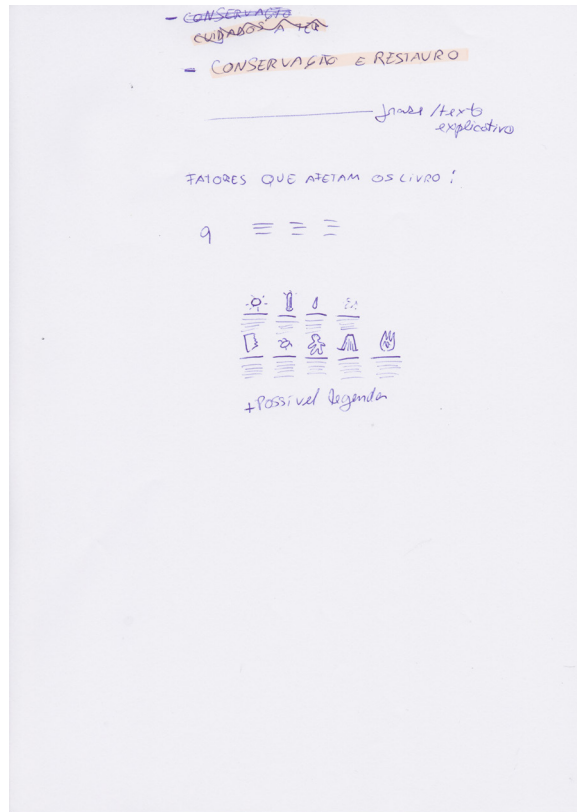 - CONSERVAÇÃO
CUIDADOS A TER
- CONSERVAÇÃO E RESTAURO
frase/texto
explicativo
FATORES QUE AFETAM OS LIVRO:
9
+ Possível legenda